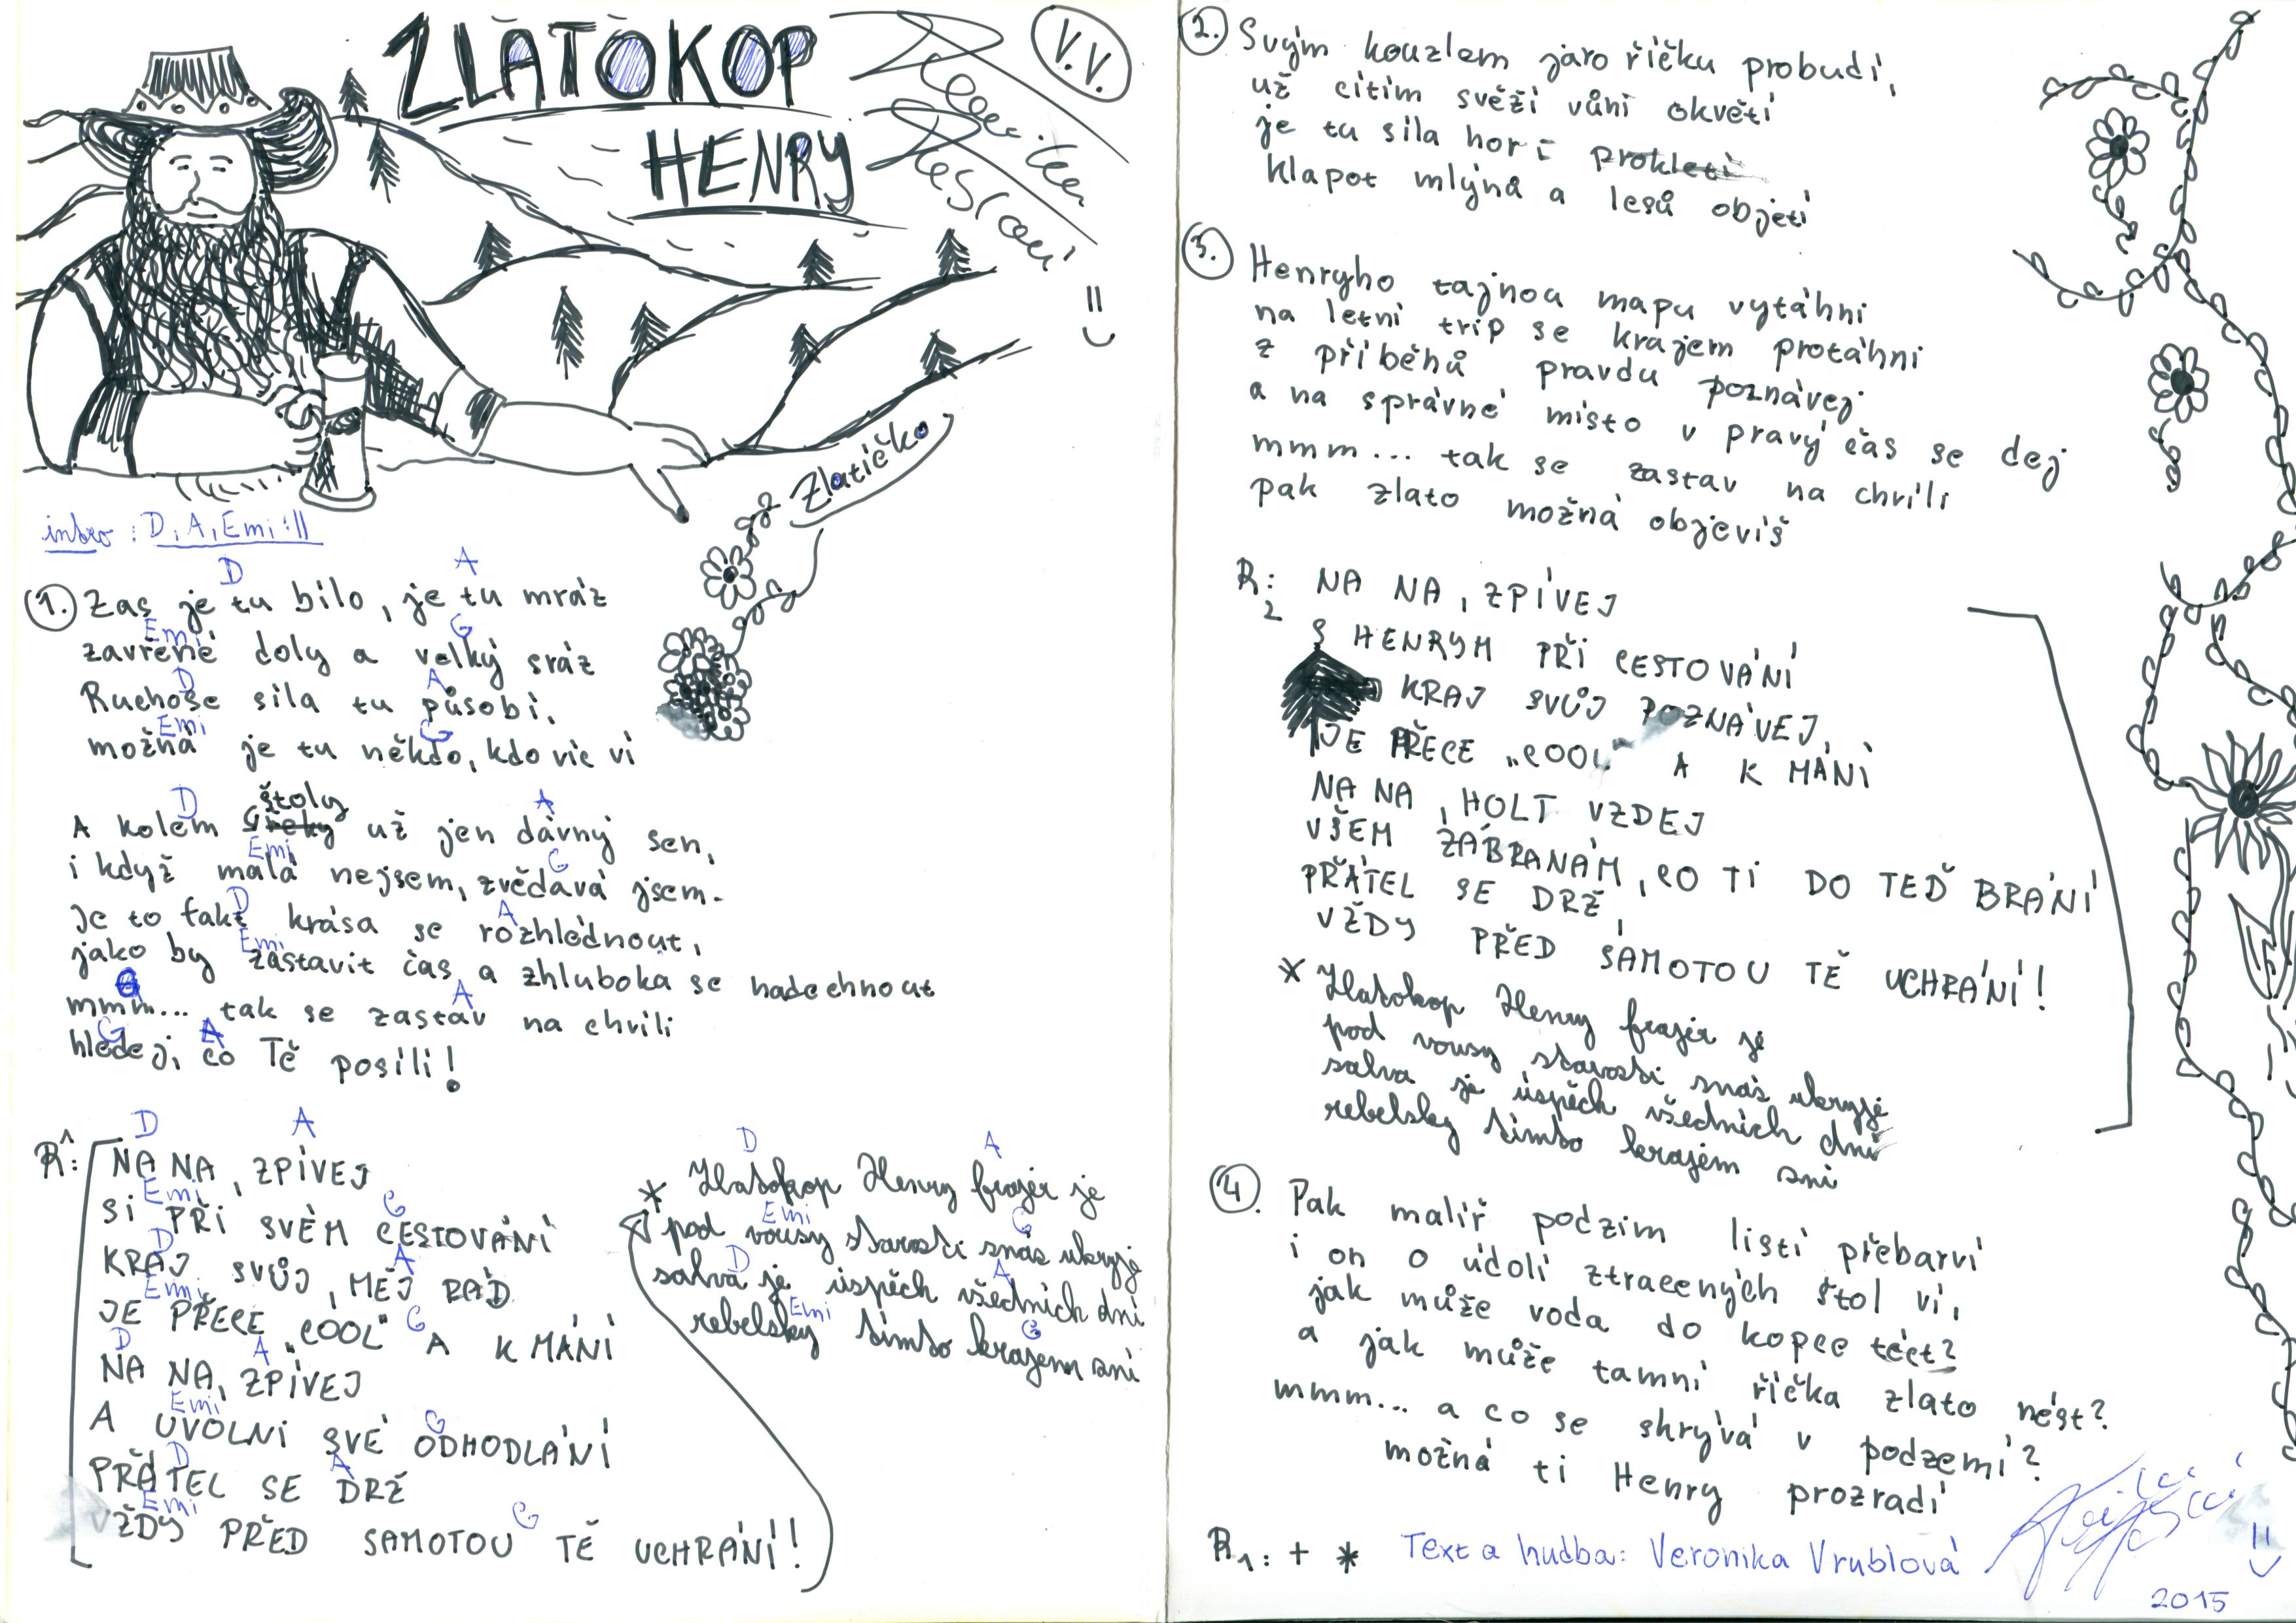 ZLATOKOP
HENRY
V.V.
Zlatíčko
intro: D, A, Emi :||
D A
1. Zas je tu bílo, je tu mráz
Emi G
zavřené doly a velký sráz
D A
Ruchoše síla tu působí,
Emi G
možná je tu někdo, kdo víc ví
D štoly A
A kolem už jen dávný sen,
Emi G
i když malá nejsem, zvědavá jsem.
D A
Je to fakt krása se rozhlédnout,
Emi
jako by zastavit čas a zhluboka se nadechnout
G A
mmm... tak se zastav na chvíli
G A
hledej, co Tě posílí!
D A
R1: NA NA, ZPÍVEJ
Emi G
SI PŘI SVÉM CESTOVÁNÍ
D A
KRAJ SVŮJ, MĚJ RÁD
Emi G
JE PŘECE "COOL" A K MÁNÍ
D A
NA NA, ZPÍVEJ
Emi G
A UVOLNI SVÉ ODHODLÁNÍ
D A
PŘÁTEL SE DRŽ
Emi G
VŽDY PŘED SAMOTOU TĚ UCHRÁNÍ!
D A
* Zlatokop Henry frajer je
Emi G
pod vousy starosti snáz ukryje
D A
salva je úspěch všedních dní
Emi G
rebelsky tímto krajem zní
2. Svým kouzlem jaro říčku probudí,
už cítím svěží vůni okvětí
je tu síla hor i prokletí
klapot mlýnů a lesů objetí
3. Henryho tajnou mapu vytáhni
na letní trip se krajem protáhni
z příběhů pravdu poznávej
a na správné místo v pravý čas se dej
mmm... tak se zastav na chvíli
pak zlato možná objevíš
R2: NA NA, ZPÍVEJ
S HENRYM PŘI CESTOVÁNÍ
KRAJ SVŮJ POZNÁVEJ,
JE PŘECE "COOL" A K MÁNÍ
NA NA, HOLT VZDEJ
VŠEM ZÁBRANÁM, CO TI DO TEĎ BRÁNÍ
PŘÁTEL SE DRŽ,
VŽDY PŘED SAMOTOU TĚ UCHRÁNÍ!
* Zlatokop Henry frajer je
pod vousy starosti snáz ukryje
salva je úspěch všedních dní
rebelsky tímto krajem zní
4. Pak malíř podzim listí přebarví
i on o údolí ztracených štol ví,
jak může voda do kopce téct?
a jak může tamní říčka zlato nést?
mmm... a co se skrývá v podzemí?
možná ti Henry prozradí
R1: + * Text a hudba: Veronika Vrublová
2015